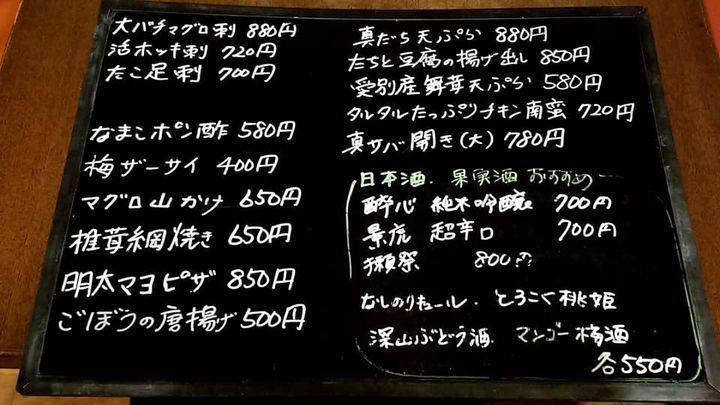 大バチマグロ刺 880円
活ホッキ刺 720円
たこ足刺 700円
なまこポン酢 580円
梅ザーサイ 400円
マグロ山かけ 650円
椎茸網焼き 650円
明太マヨピザ 850円
ごぼうの唐揚げ 500円
真だち天ぷら 880円
たちと豆腐の揚げ出し 850円
愛別産舞茸天ぷら 580円
タルタルたっぷりチキン南蛮 720円
真サバ開き(大) 780円
日本酒. 果実酒 おすすめ
酔心 純米吟醸 700円
景虎 超辛口 700円
獺祭 800円
なしのリキュール. とろこく桃姫
深山ぶどう酒. マンゴー梅酒
各550円